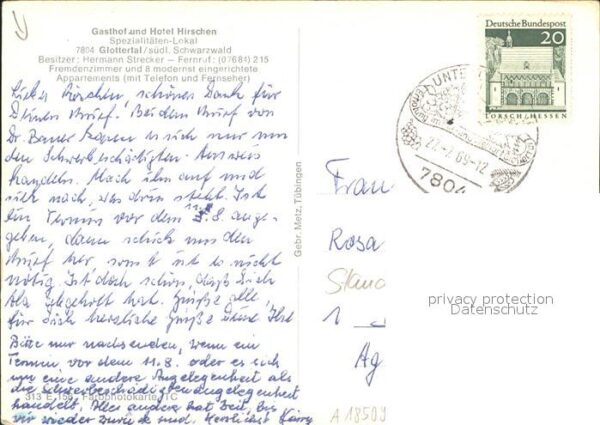 Gasthof und Hotel Hirschen
Spezialitäten-Lokal
7804 Glottertal/südl. Schwarzwald
Besitzer: Hermann Strecker – Fernruf: (07684) 215
Fremdenzimmer und 8 modernst eingerichtete
Appartements (mit Telefon und Fernseher)
schönen Dank für
Deinen Brief. Bei dem Brief von
Dr. es sich nur um
den Schwerbeschädigten-Ausweis
handeln. Mach ihn auf und
sieh nach, was drin steht. Ist
ein Termin vor dem 11.8. ange-
geben, dann schick uns den
Brief her, sonst ist es nicht
nötig. Ist doch schön, daß Dich
abgeholt hat. Grüße alle,
für Dich herzliche Grüße
Bitte nur nachsenden, wenn ein
Termin vor dem 11.8. oder es sich
um eine andere Angelegenheit als
die Schwerbeschädigtenangelegenheit
handelt. Alles andere hat Zeit, bis
wir wieder zurück sind. Herzlichst
313 E 156 Farbphotokarte TC
Gebr. Metz, Tübingen
Deutsche Bundespost
20
LORSCH/HESSEN
27.-7.69-12
7804
Frau
Rosa
1
Ag
privacy protection
Datenschutz
A 18509